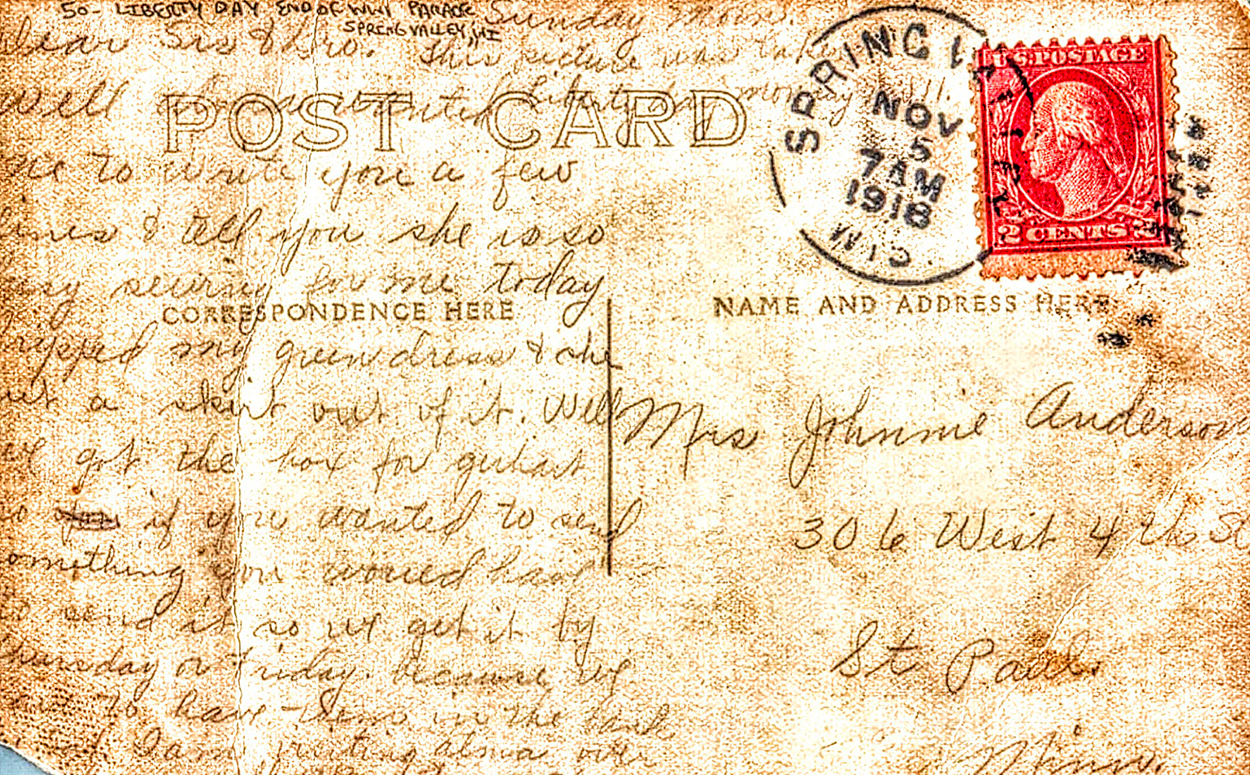 50- LIBERTY DAY END OF WWI PARADE
SPRING VALLEY, WI
Sunday morn.
Dear Sis & Bro. This picture was
Well wanted Liberty day morning
POST CARD
me to write you a few
lines & tell you she is so
sewing for me today
ripped my green dress & she
cut a skirt out of it. Well
we got the box for
so if you wanted to send
something you would have
to send it so we get it by
Thursday or Friday. because we
to have them in the bank
I am visiting alma over
CORRESPONDENCE HERE
SPRING VALLEY
NOV
5
7 AM
1918
WIS.
U.S. POSTAGE
2 CENTS 2
NAME AND ADDRESS HERE
Mrs Johnnie Anderson
306 West 4th St
St Paul.
Minn.